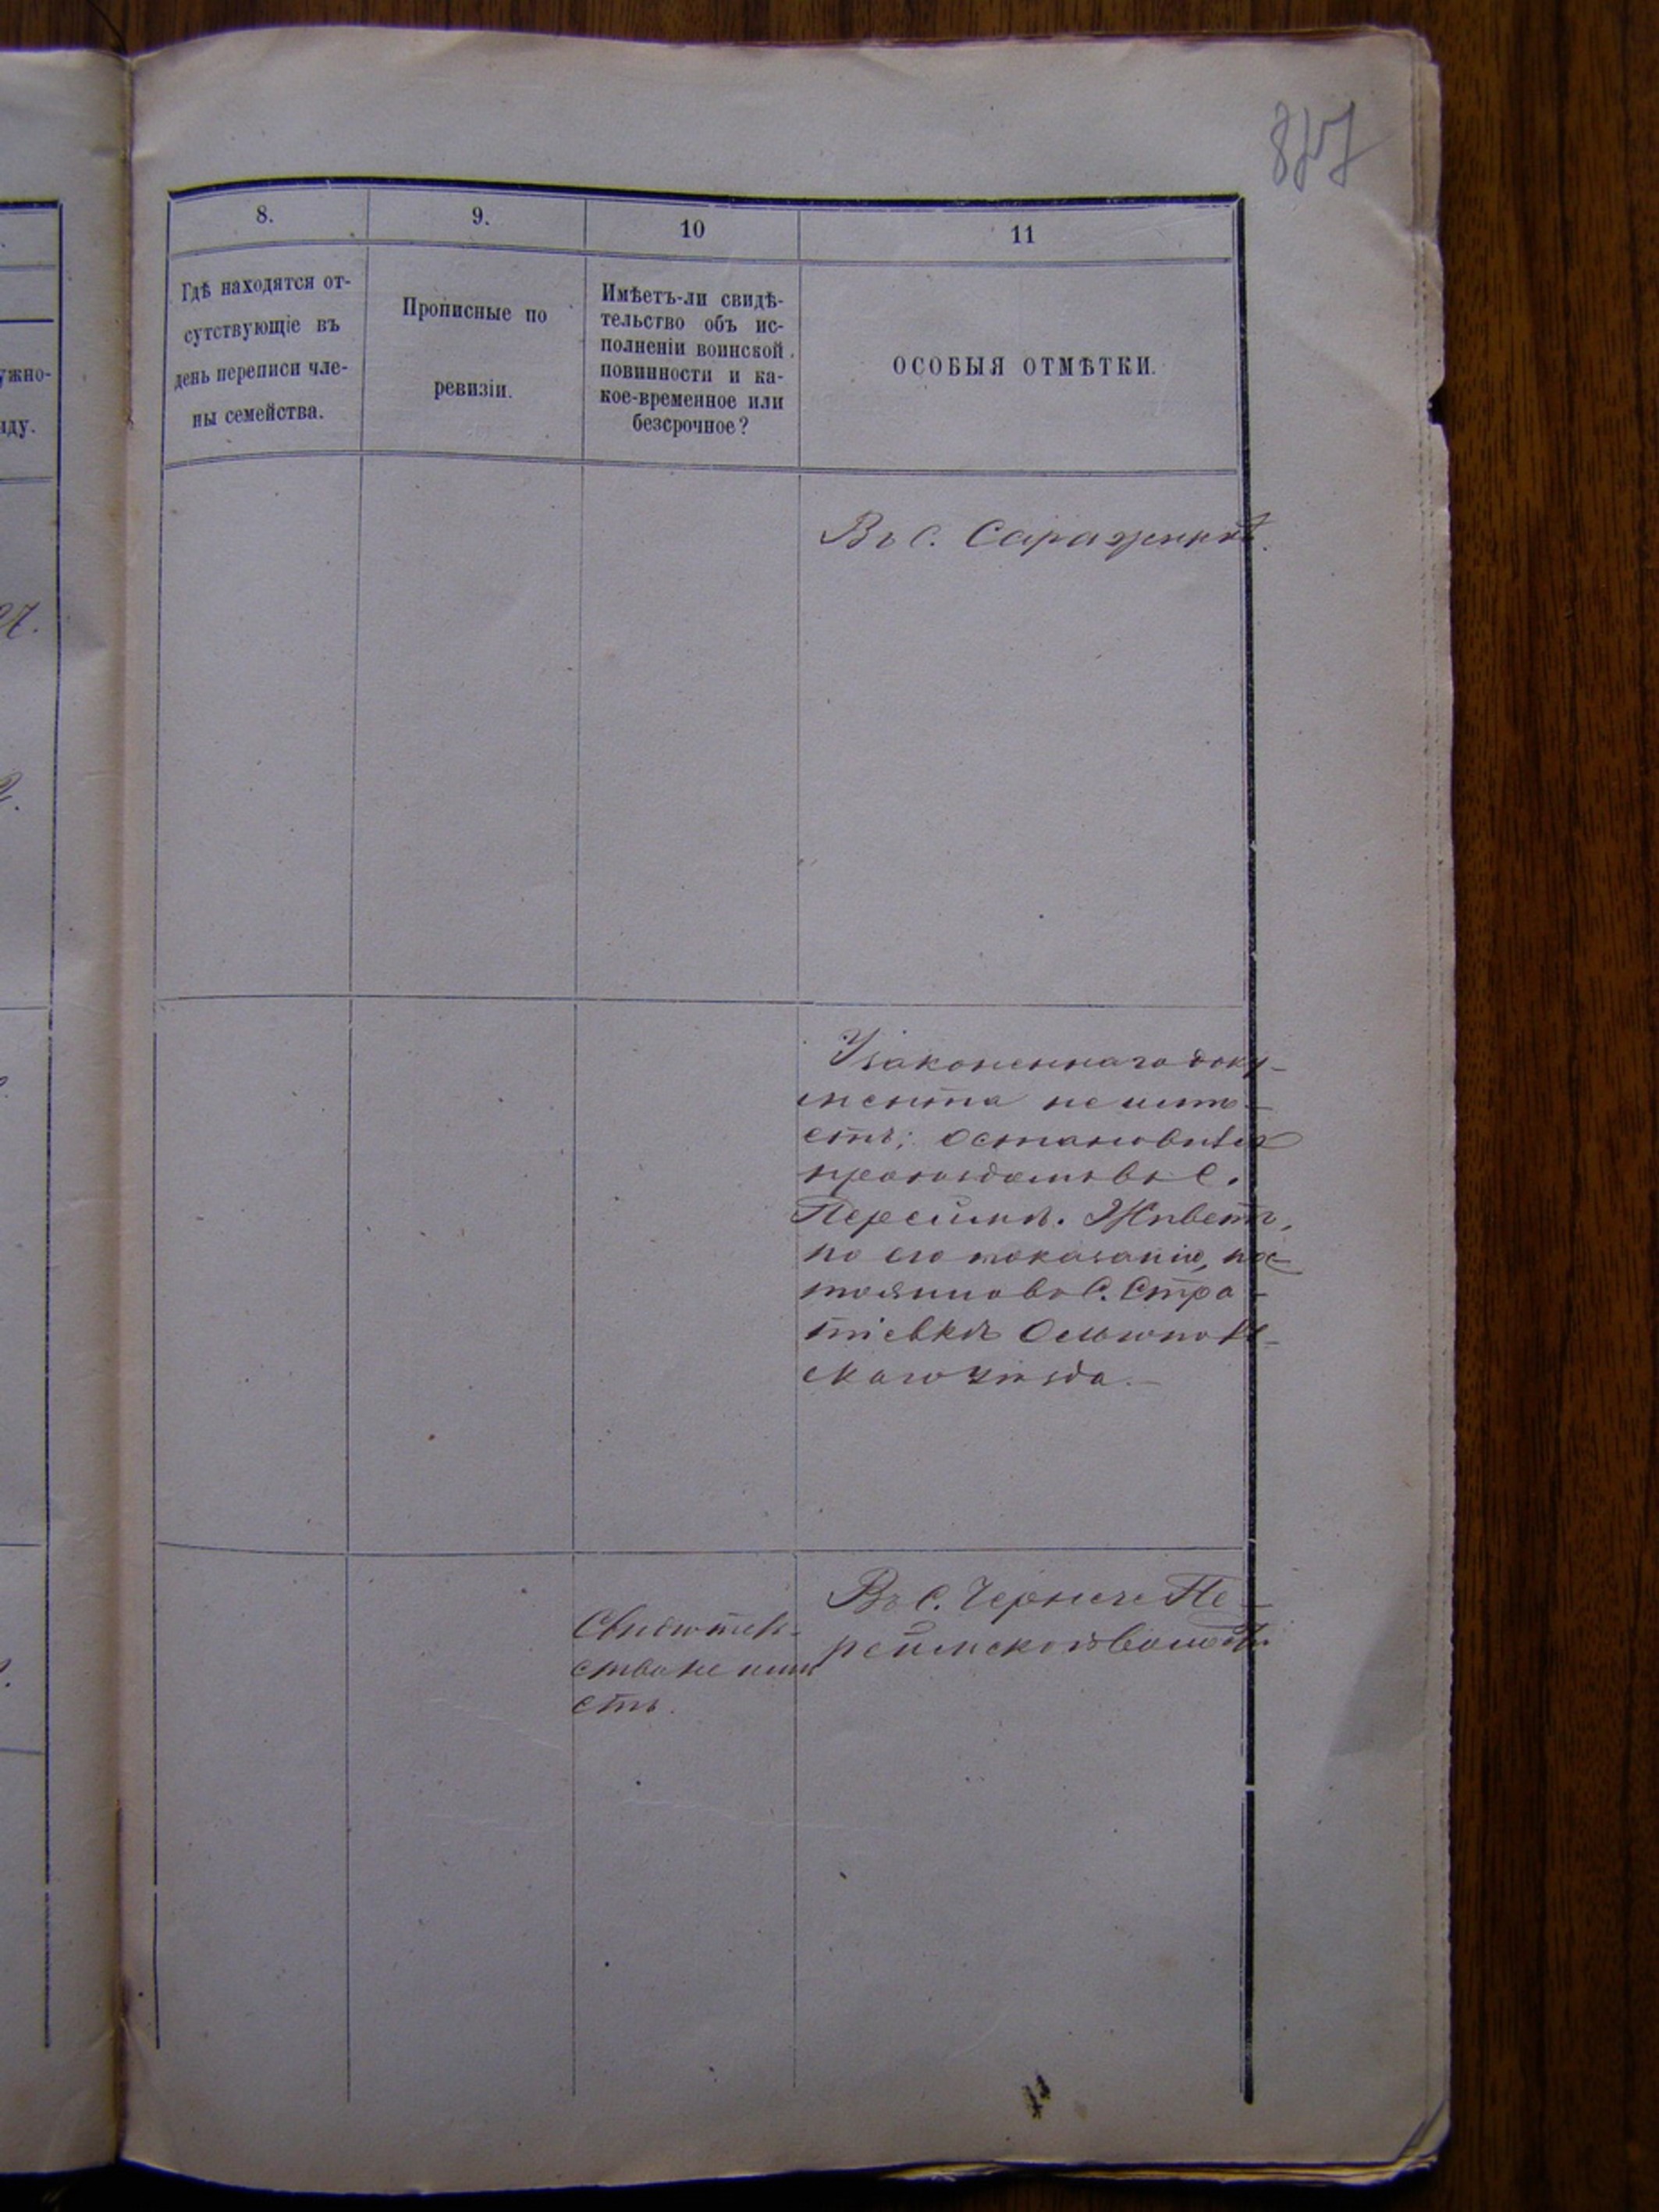 8.
9.
10
11
Гдѣ находятся от-
сутствующіе въ
день переписи чле-
ны семейства.
Прописные по
ревизіи.
Имѣетъ-ли свидѣ-
тельство объ ис-
полненіи воинской
повинности и ка-
кое-временное или
безсрочное?
ОСОБЫЯ ОТМѢТКИ.
ужно-
иду.
Въ С. Саражинкѣ.
Узаконеннаго доку-
мента не имѣ-
етъ; остановился
проѣздомъ въ С.
Переймѣ. Живетъ,
по его показанію, пос-
тоянно въ С. Стра-
тіевкѣ Ольгопол-
скаго уѣзда.
Свидѣтель-
ства не имѣ
етъ.
Въ С. Черне Пе-
реймской волости